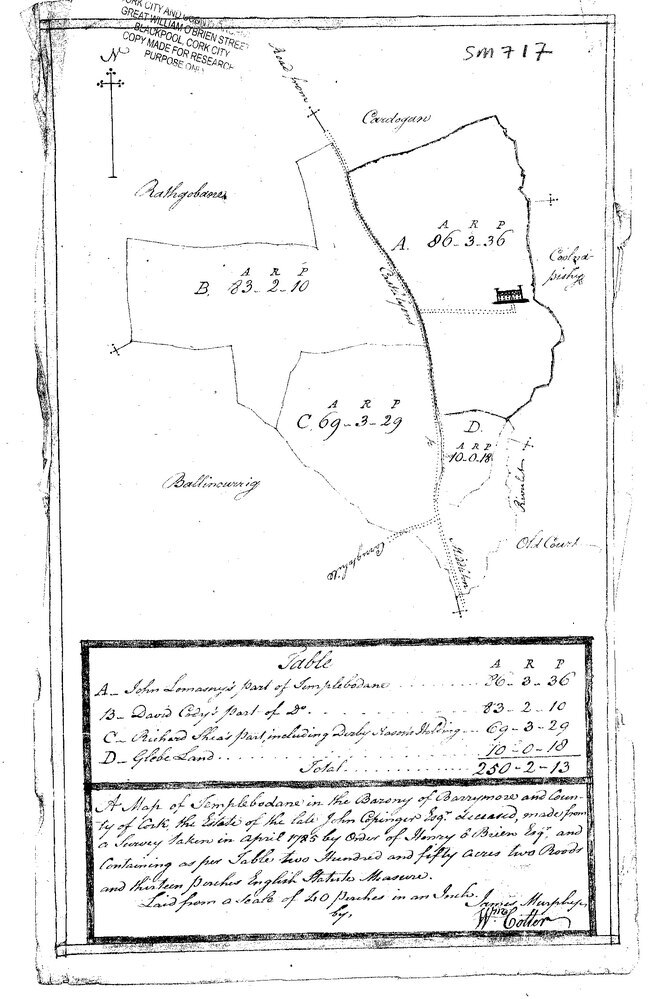 CORK CITY AND COUNTY
GREAT WILLIAM O'BRIEN STREET
BLACKPOOL, CORK CITY
COPY MADE FOR RESEARCH
PURPOSE ONLY
SM717
N
Road from
Cardogan
Rathgobane
A. A R P
86-3-36
Castlelyons
B. A R P
83-2-10
C. A R P
69-3-29
to
D.
A R P
10-0-18
Ballincurrig
Rivulet
Old Court
Midleton
Table A R P
A_ John Lomasny's part of Templebodane 86-3-36
B_ David Cody's part of Do. 83-2-10
C_ Richard Shea's part, including Derby Holding 69-3-29
D_ Glebe Land 10-0-18
Total 250-2-13
A Map of Templebodane in the Barony of Barrymore and Coun-
ty of Cork, the Estate of the late John Esqr. deceased, made from
a Survey taken in April 1785 by Order of Henry O Brien Esqr. and
Containing as per Table two Hundred and fifty acres two Roods
and thirteen perches English Statute Measure.
Laid from a Scale of 40 Perches in an Inch.
by, James Murphy,
Wm. Cotter